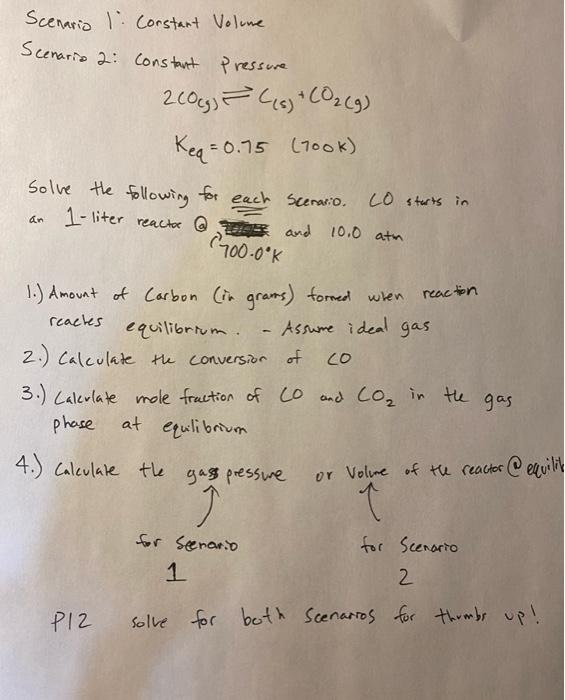 Scenario 1: Constant Volume
Scenario 2: Constant Pressure
2CO(g) ⇌ C(s) + CO2(g)
Keq = 0.75 (700K)
Solve the following for each Scenario. CO starts in
an 1-liter reactor @ and 10.0 atm
700.0°K
1.) Amount of Carbon (in grams) formed when reaction
reaches equilibrium. - Assume ideal gas
2.) Calculate the conversion of CO
3.) Calculate mole fraction of CO and CO2 in the gas
phase at equilibrium
4.) Calculate the gas pressure or Volume of the reactor @ equilib
for Scenario for Scenario
1 2
P12 solve for both Scenarios for thumbs up!